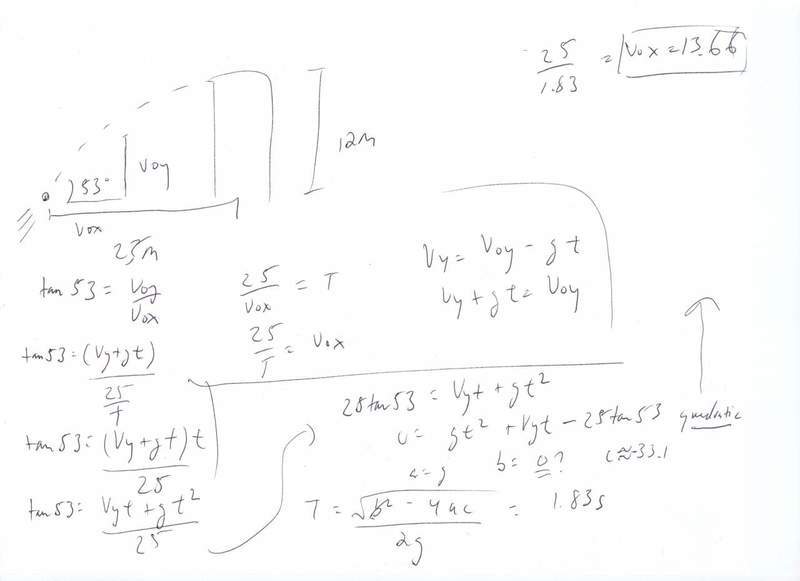 25/1.83 = Vox = 13.66
12m
53°
Voy
Vox
25m
tan 53 = Voy/Vox
25/Vox = T
25/T = Vox
Vy = Voy - gt
Vy + gt = Voy
tan 53 = (Vy+gt)/(25/T)
tan 53 = (Vy+gt)t/25
tan 53 = Vyt + gt²/25
25tan53 = Vyt + gt²
0 = gt² + Vyt - 25tan53 quadratic
a=g b=0? c≈-33.1
T = √(b² - 4ac)/2g = 1.83s